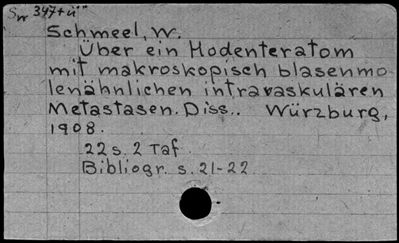 Schmeel, W.
Über ein Hodenteratom
mit makroskopisch blasenmo
lenähnlichen intravaskulären
Metastasen. Diss.. Würzburg,
1908.
22 s. 2 Taf.
Bibliogr. s. 21-22